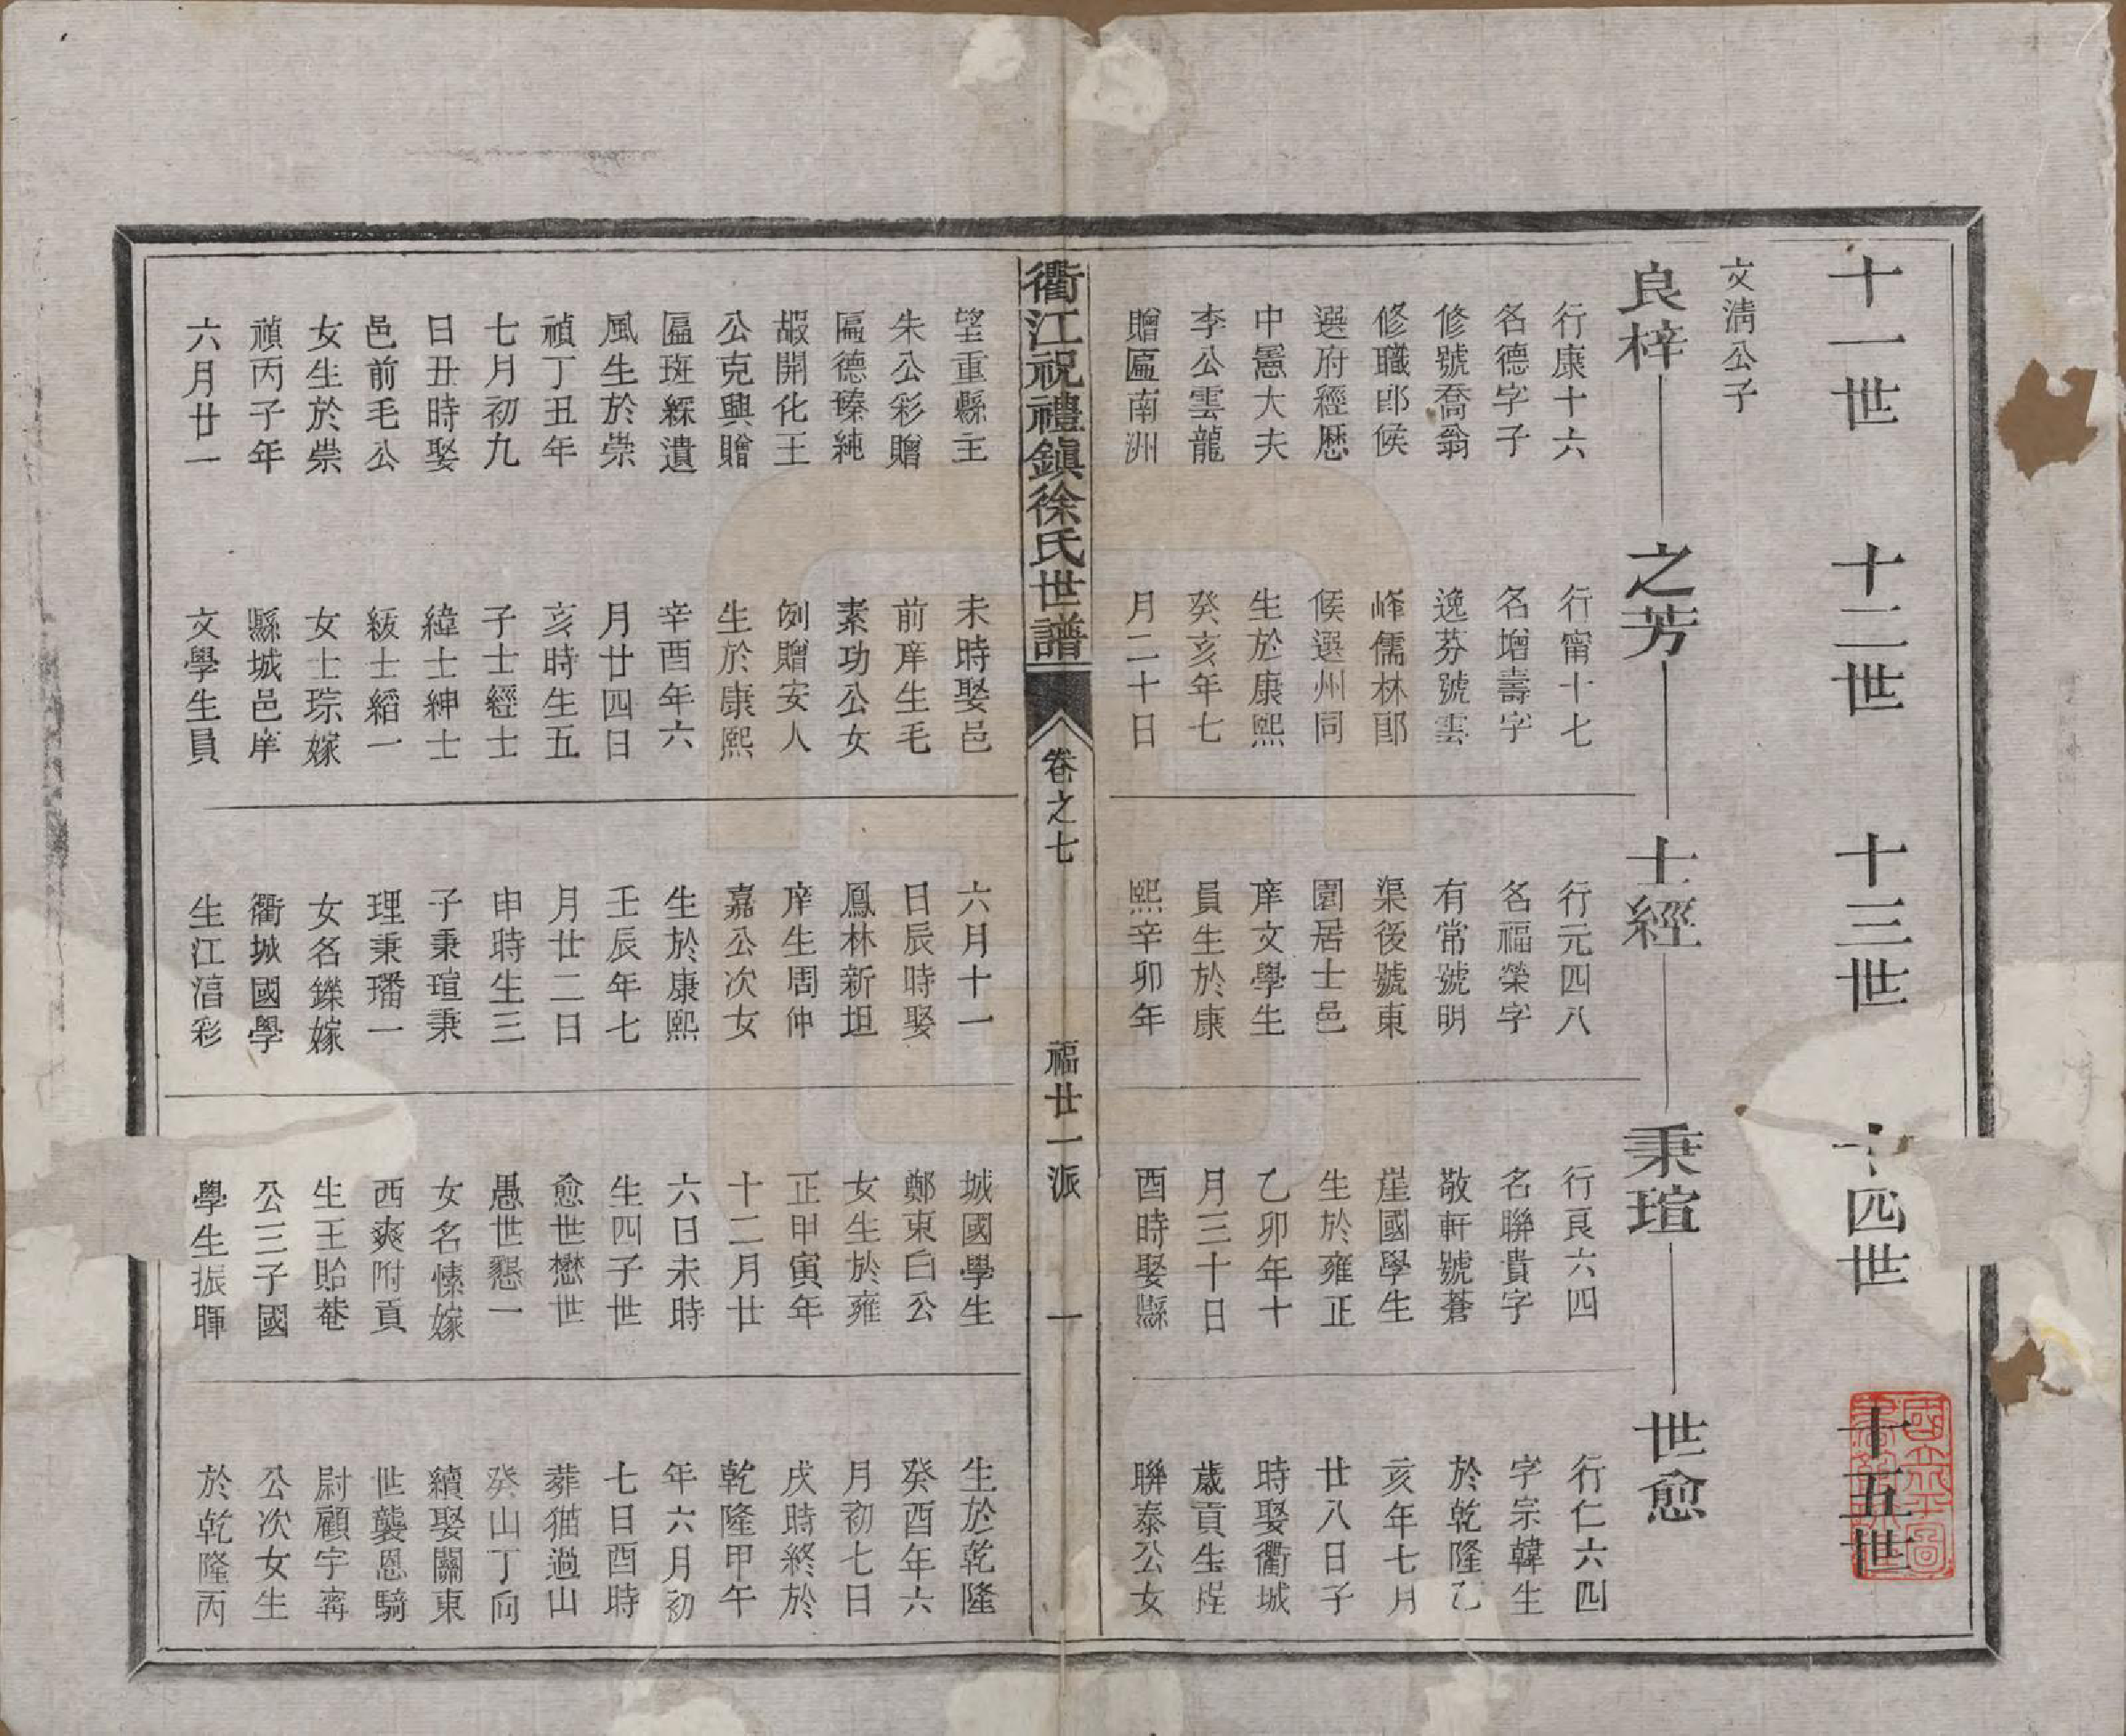 十一世
十二世
十三世
十四世
十五世
文淸公子
良梓
之芳
士經
秉瑄
世愈
行康十六
名德字子
修號喬翁
修職郎候
選府經歷
中憲大夫
李公雲龍
贈匾南洲
行甯十七
名增壽字
逸芬號雲
峰儒林郎
候選州同
生於康熙
癸亥年七
月二十日
行元四八
名福榮字
有常號明
渠後號東
園居士邑
庠文學生
員生於康
熙辛卯年
行良六四
名聯貴字
敬軒號蒼
崖國學生
生於雍正
乙卯年十
月三十日
酉時娶縣
行仁六四
字宗韓生
於乾隆乙
亥年七月
廿八日子
時娶衢城
歲貢生程
聯泰公女
衢江祝禮鎭徐氏世譜
卷之七
福廿一派
一
望重縣主
朱公彩贈
匾德臻純
嘏開化王
公克興贈
匾斑綵遺
風生於崇
禎丁丑年
七月初九
日丑時娶
邑前毛公
女生於崇
禎丙子年
六月廿一
未時娶邑
前庠生毛
素功公女
例贈安人
生於康熙
辛酉年六
月廿四日
亥時生五
子士經士
緯士紳士
紱士縚一
女士琮嫁
縣城邑庠
文學生員
六月十一
日辰時娶
鳳林新坦
庠生周仲
嘉公次女
生於康熙
壬辰年七
月廿二日
申時生三
子秉瑄秉
理秉璠一
女名鑠嫁
衢城國學
生江湻彩
城國學生
鄭東白公
女生於雍
正甲寅年
十二月廿
六日未時
生四子世
愈世懋世
愚世懇一
女名愫嫁
西爽附貢
生王貽菴
公三子國
學生振暉
生於乾隆
癸酉年六
月初七日
戌時終於
乾隆甲午
年六月初
七日酉時
葬猫過山
癸山丁向
續娶關東
世襲恩騎
尉顧宇寗
公次女生
於乾隆丙